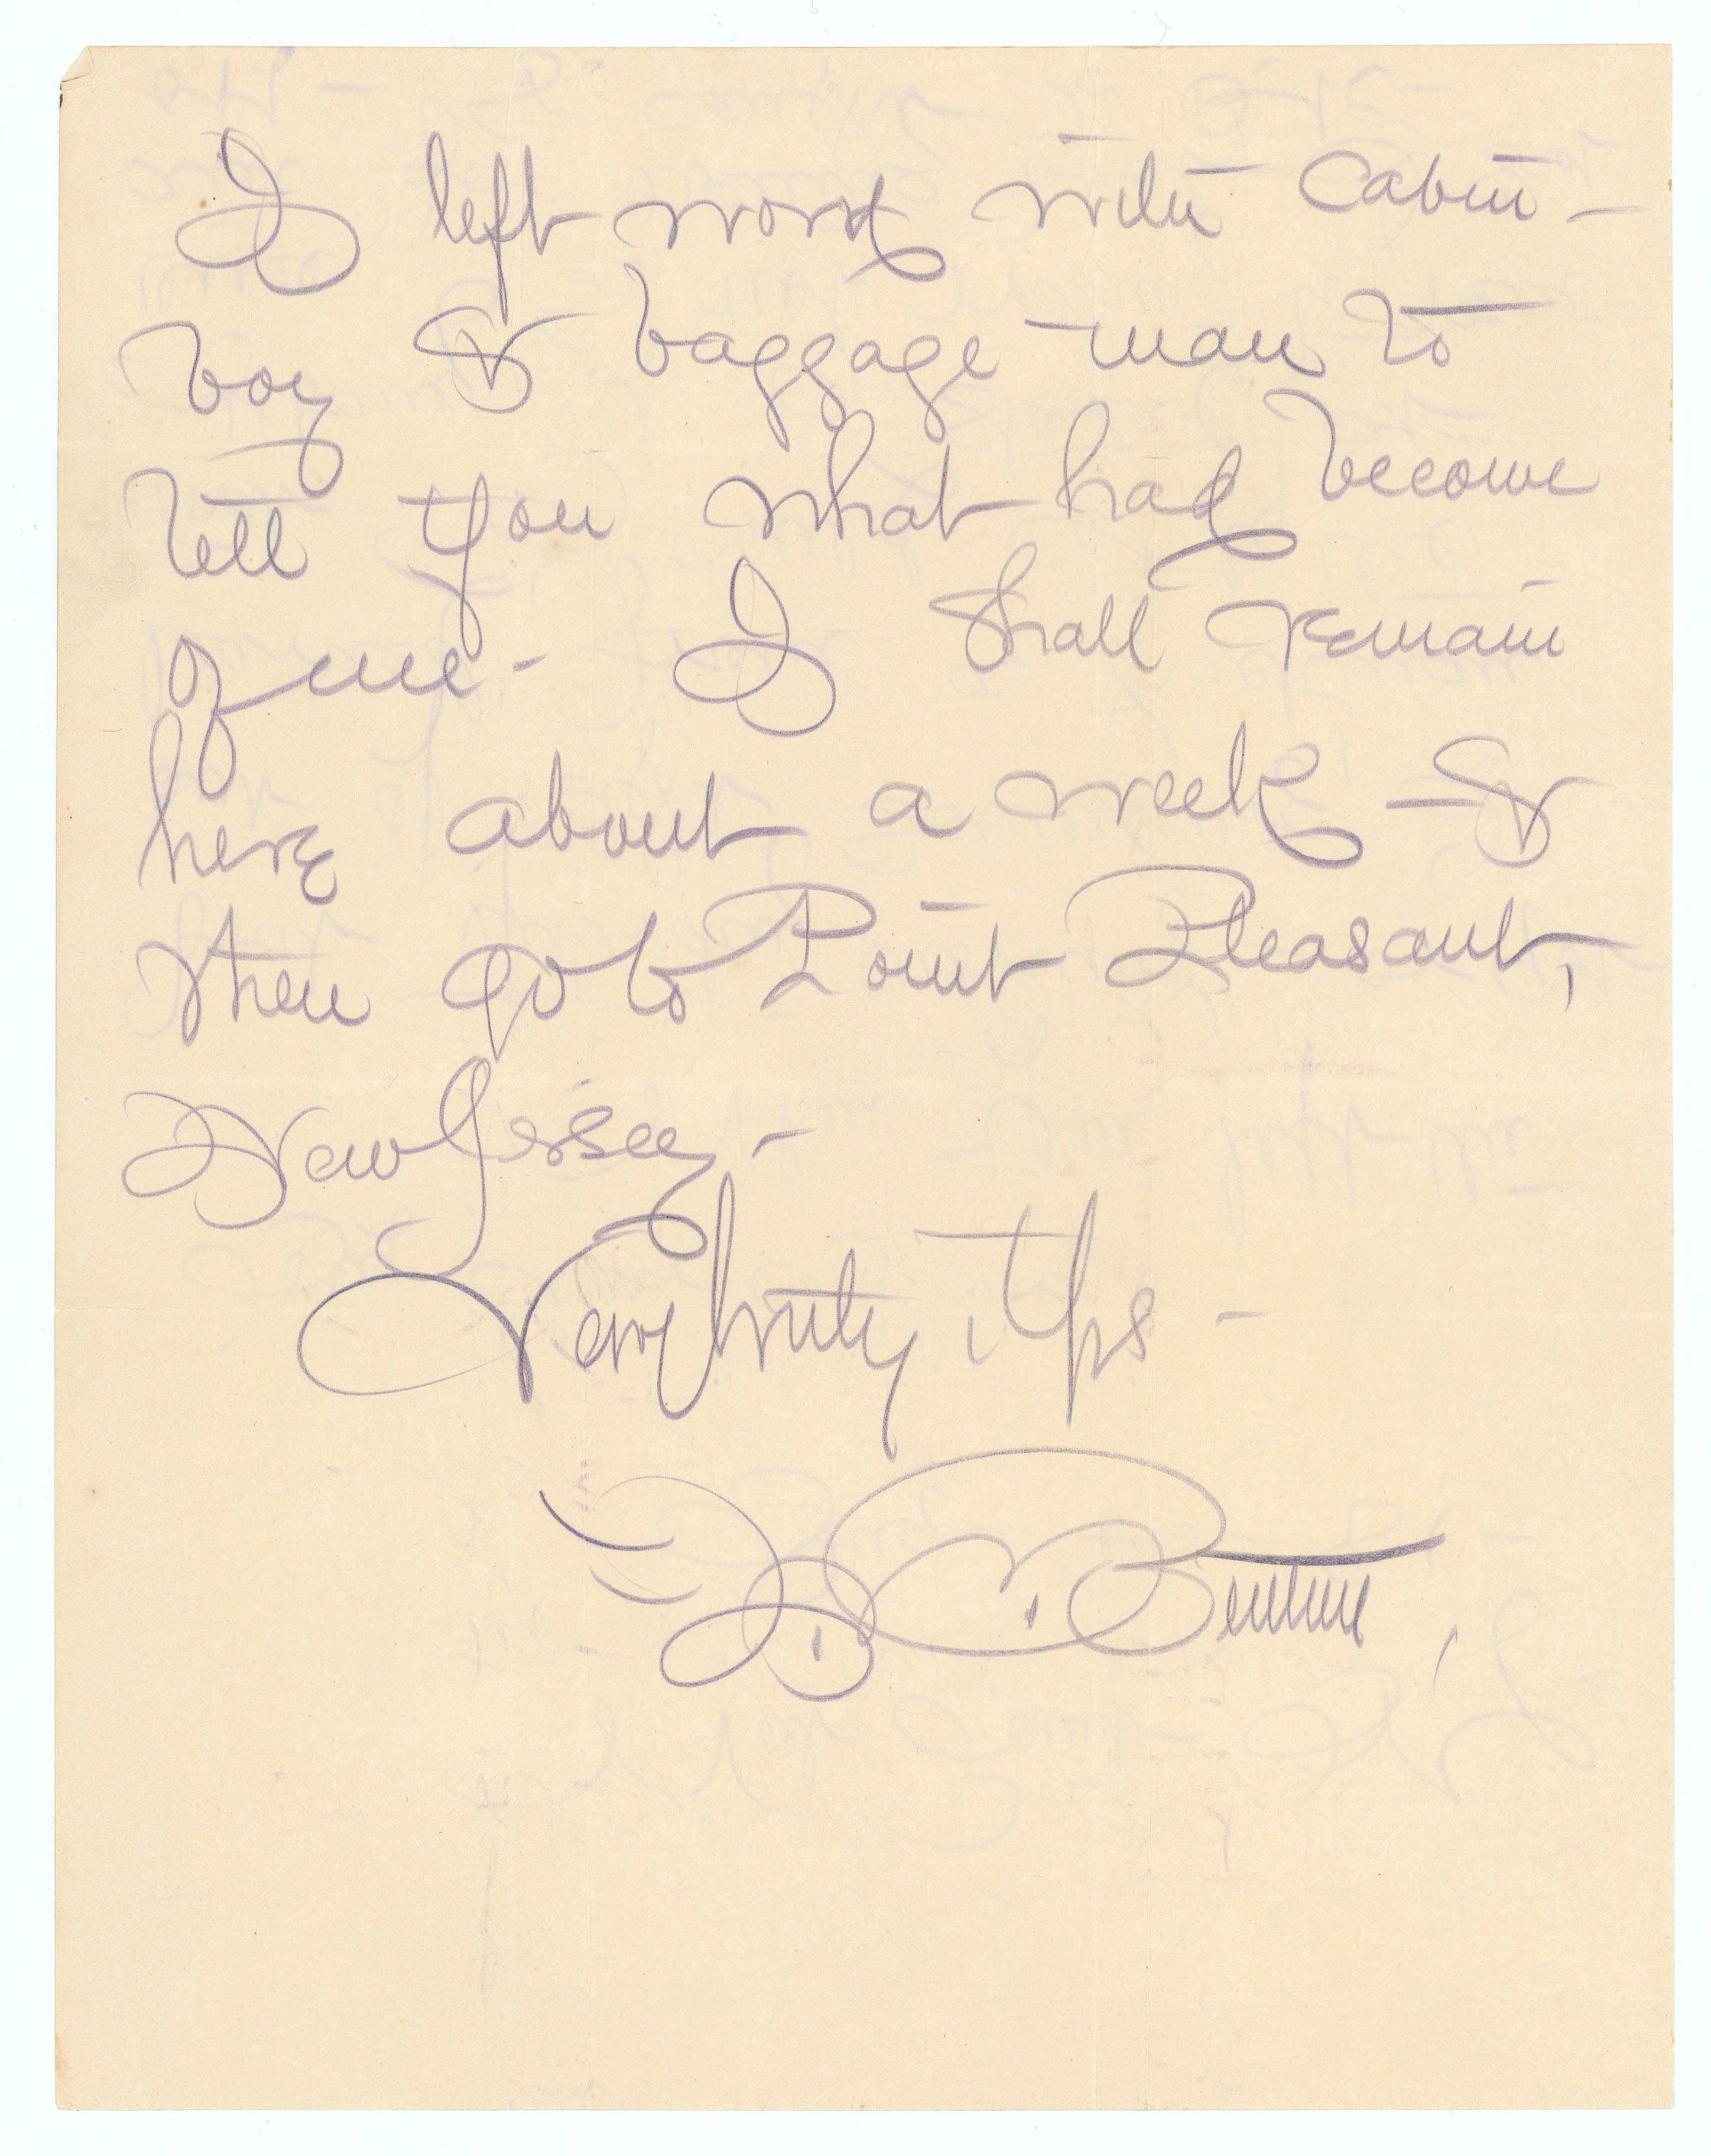 I left word with Cabin-
boy & baggage-man to
tell you what had become
of me - I shall remain
here about a week - &
then go to Point Pleasant,
New Jersey -
Very truly